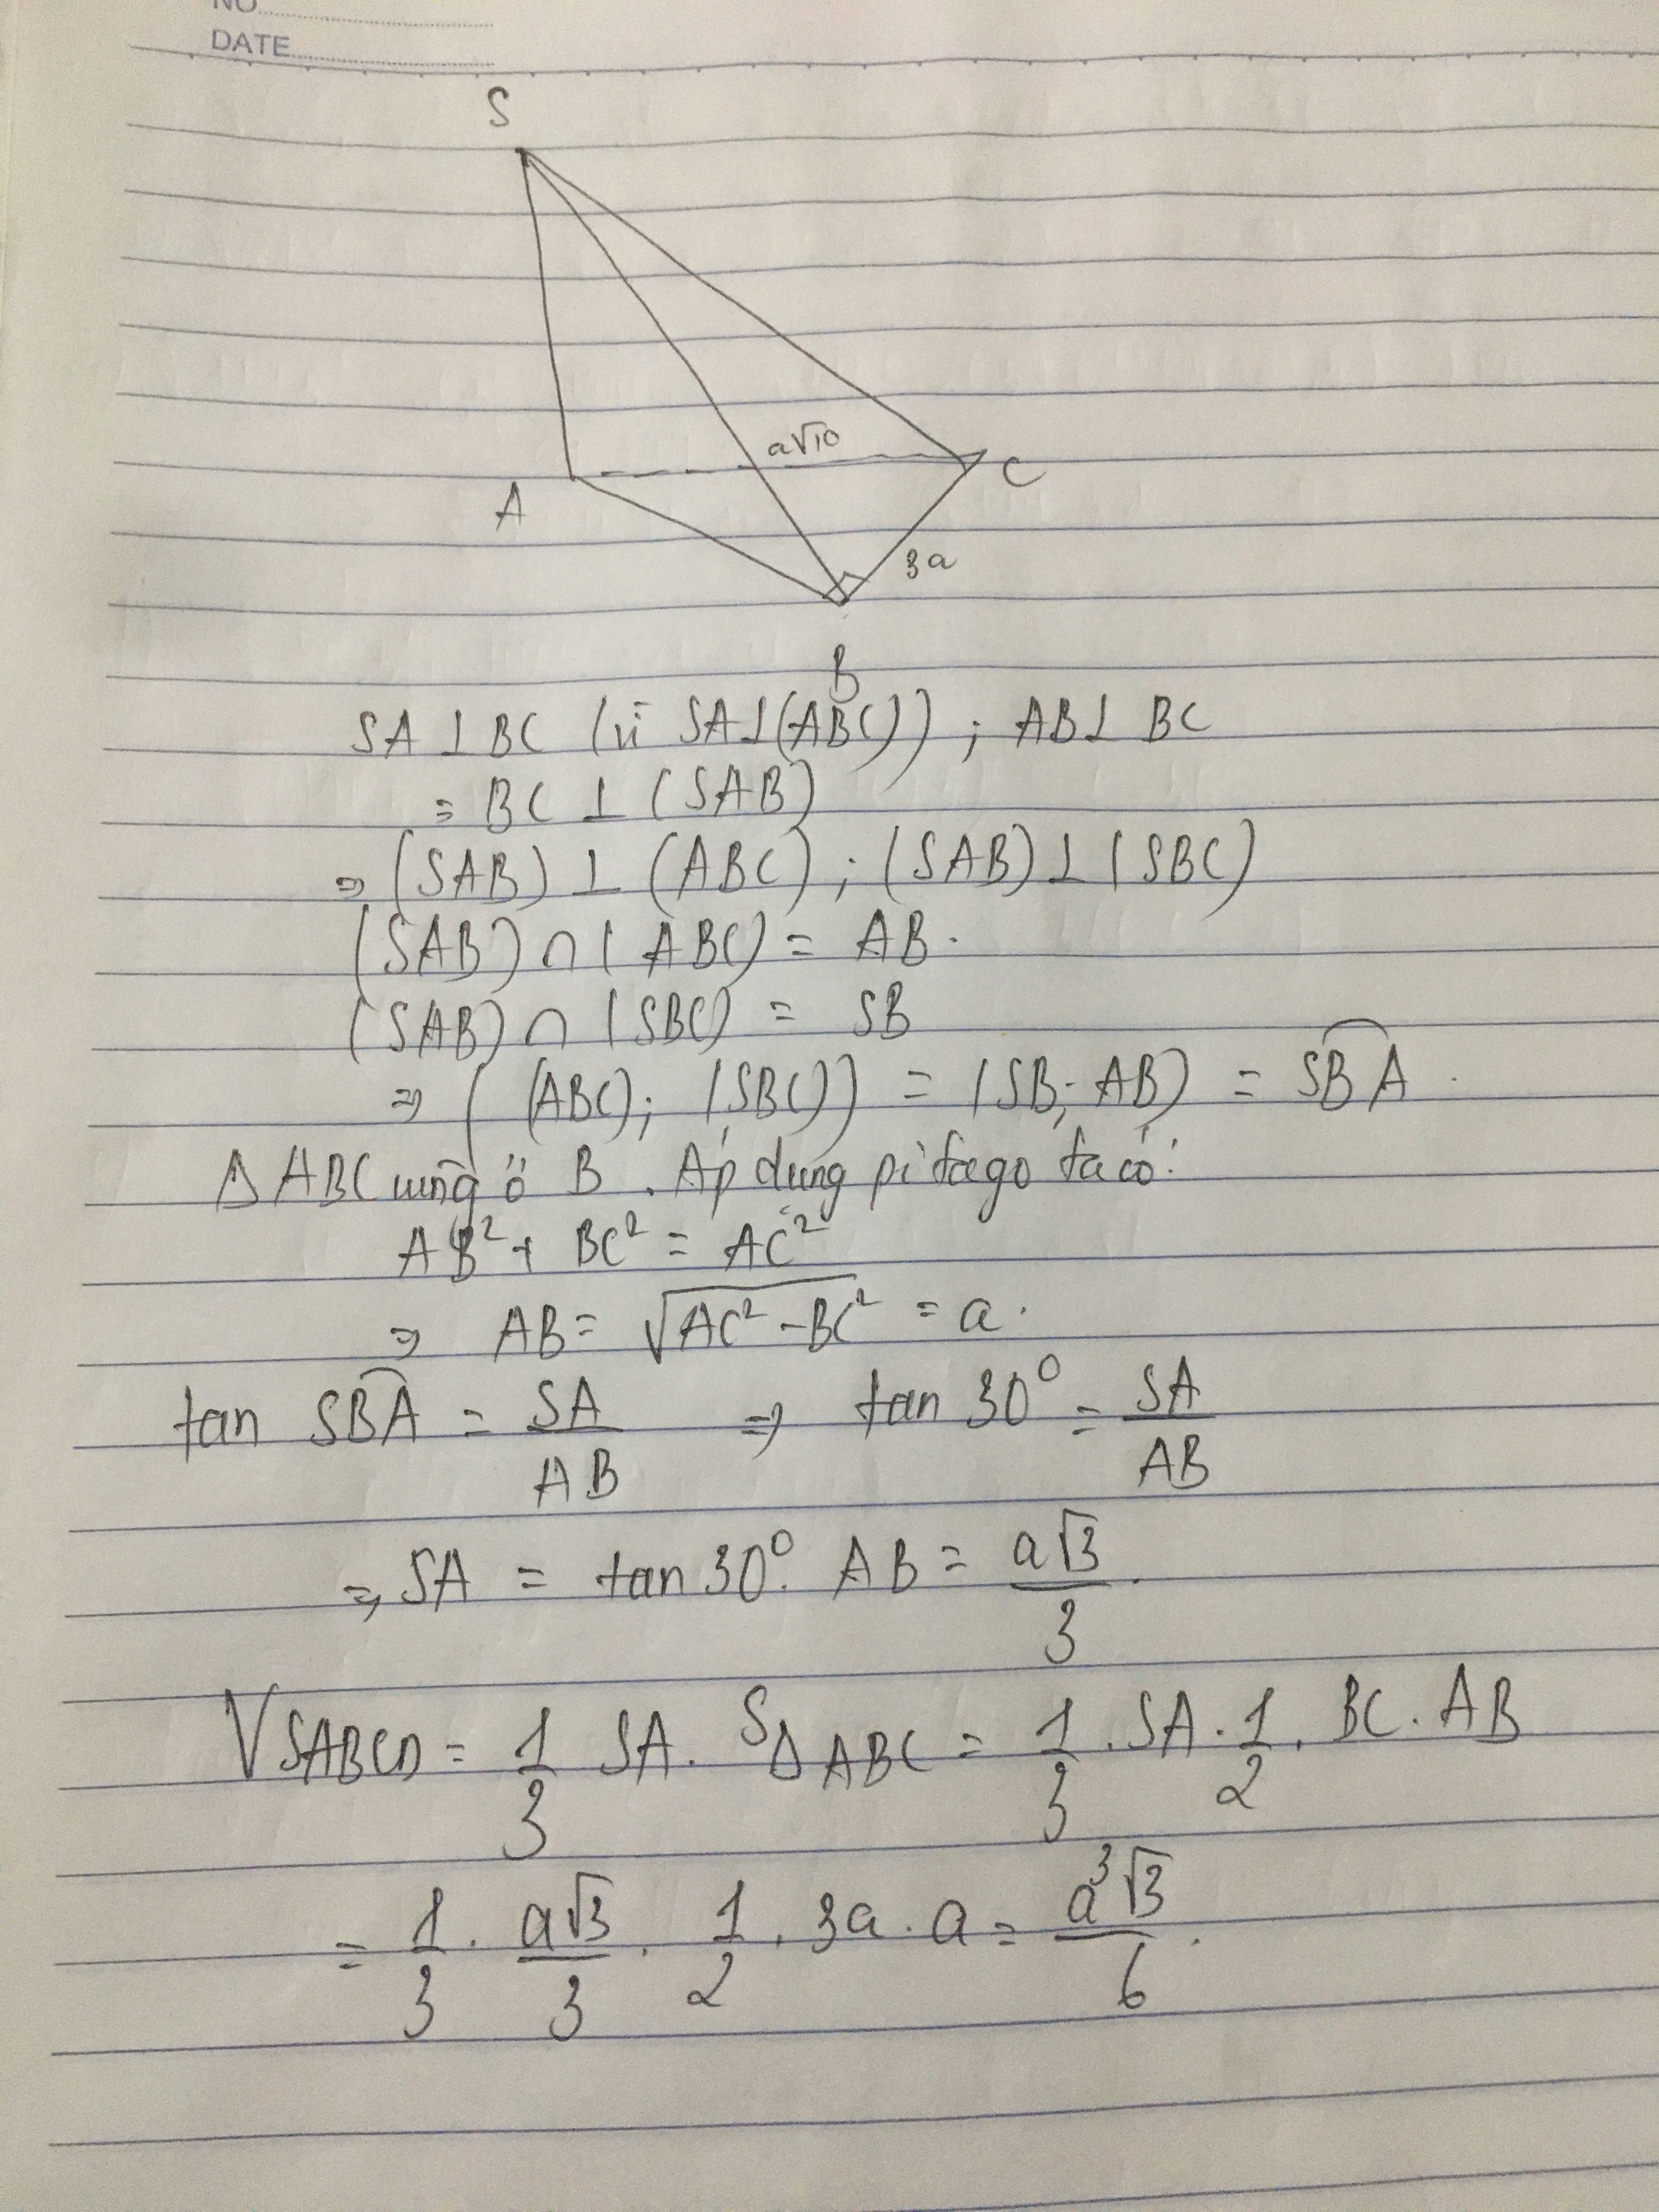 NO
DATE
S
a√10
A
C
3a
B
SA ⊥ BC (vì SA⊥(ABC)) ; AB⊥ BC
= BC ⊥ (SAB)
⇒ (SAB) ⊥ (ABC) ; (SAB) ⊥ (SBC)
(SAB) ∩ (ABC) = AB.
(SAB) ∩ (SBC) = SB
⇒ ( (ABC); (SBC)) = (SB; AB) = SBA .
Δ ABC uông ở B . Áp dụng pitago ta có:
AB² + BC² = AC²
⇒ AB = √AC² - BC² = a.
tan SBA = SA/AB ⇒ tan 30° = SA/AB
⇒ SA = tan 30°. AB = a√3/3.
VSABCD = 1/3 SA. SΔABC = 1/3 . SA . 1/2 . BC . AB
= 1/3 . a√3/3 . 1/2 . 3a . a = a³√3/6 .